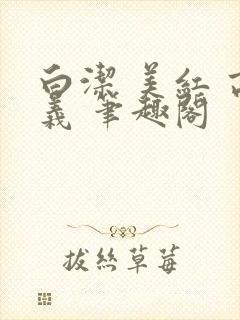 白潔 美紅 高
義 筆趣閣
拔絲草莓